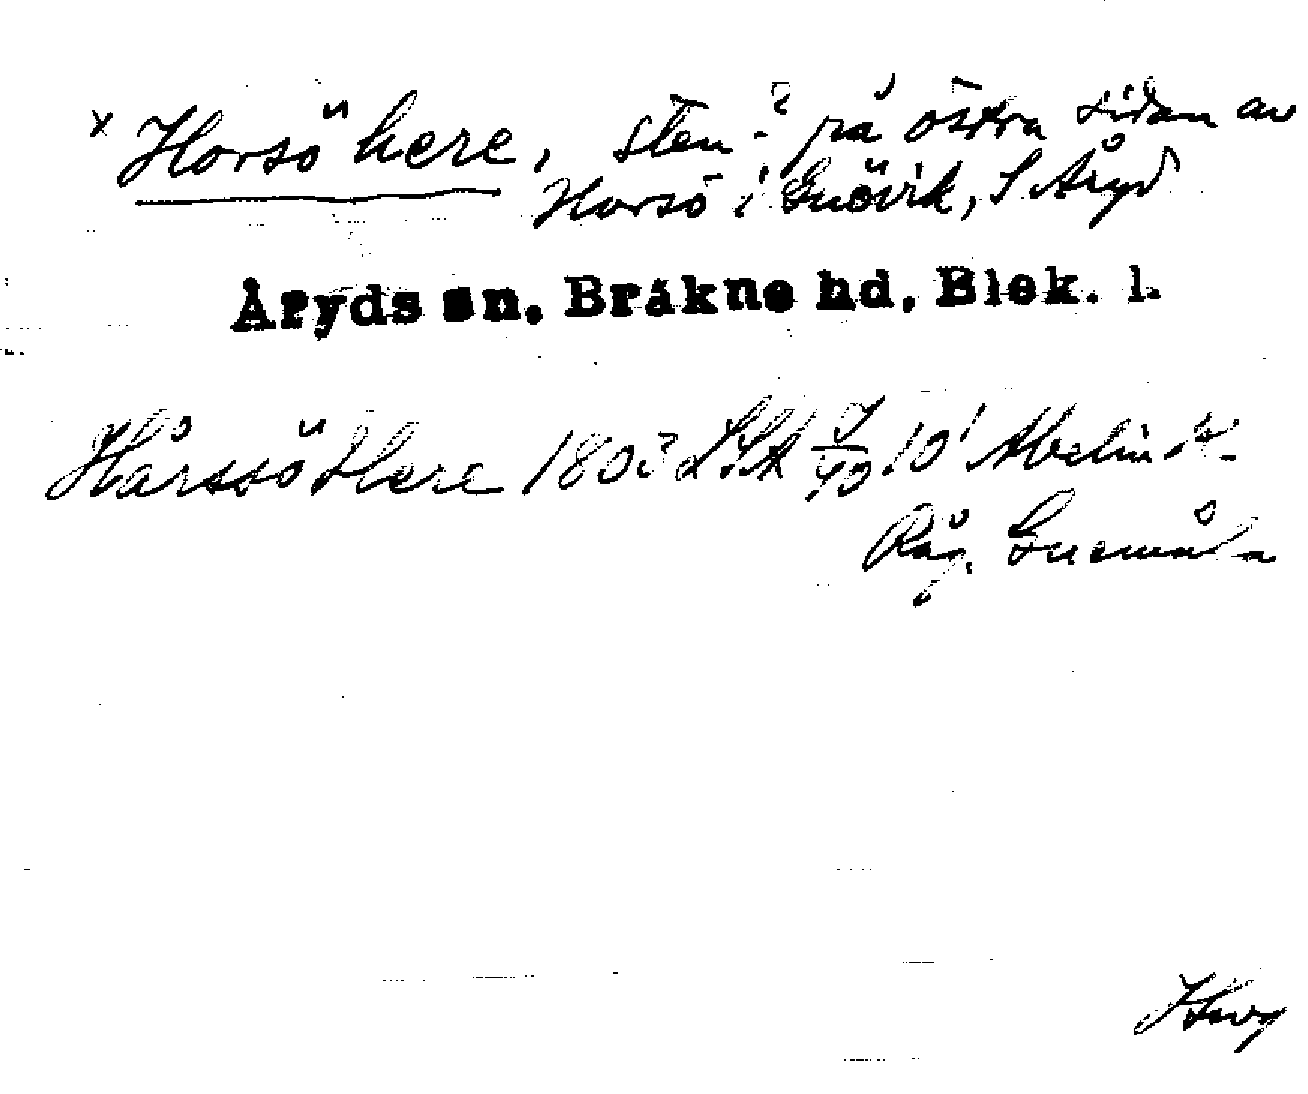 x Horsö here, sten? på östra sidan av
Horsö i Gnövik, S Åryd
Åryds sn. Bräkne hd. Blek. l.
Hårssö Here 1803 LSA 7/40 10' Abelin
Råg. Guemåla